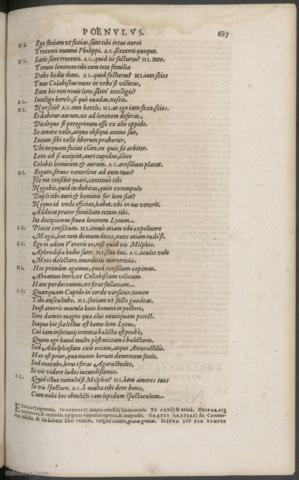 POENVLVS. 687
MI. Ego faciam vt facias. sunt tibi intus aurei
Trecenti nummi Philippi. AG. sexcenti quoque.
MI. Satis sunt trecenti. AG. quid iis facturus? MI. tace.
Totum lenonem tibi cum tota familia
Dabo hodie dono. AG. quid facturus? MI. iam scies
Tuus Collabiscus nunc in vrbe est villicus,
Eum hic non nouit leno. satin' intelligis?
AG. Intellego hercle, si quo euadas, nescio.
MI. Nescis? AG. non hercle. MI. at ego iam faxo, scies.
Ei dabitur aurum, vt ad lenonem deferat,
Dicatque se peregrinum esse ex alio oppido.
Se amare velle, atque obsequi animo suo,
Locum sibi velle liberum praeberier,
Vbi nequam faciat clam, ne quis sit arbiter.
Leno ad se accipiet, auri cupidus, ilico
Celabit hominem & aurum. AG. consilium placet.
MI. Rogato, seruus veneritne ad eum tuus?
Ille me censebit quaeri, continuo tibi
Negabit. quid tu dubitas, quin extempulo
Dupli tibi auri & hominis fur leno siet?
Neque id vnde efficiat, habet. vbi in ius venerit,
Addicet praetor familiam totam tibi.
Ita decipiemus fouea lenonem Lycum.
AG. Placet consilium. MI. immo etiam vbi expoliuero
Magis, hoc tum demum dices, nunc etiam rude st.
AG. Ego in aedem Veneris eo, nisi quid vis Milphio.
Aphrodisia hodie sunt. MI. scio hoc. AG. oculos volo
Meos delectare munditiis meretriciis.
MI. Hoc primum agamus, quod consilium cepimus.
Abeamus intro, vt Collabiscum villicum
Hanc perdoceamus, vt ferat fallaciam.
AG. Quanquam Cupido in corde versatur, tamen
Tibi auscultabo. MI. faciam vt facto gaudeas.
Inest amoris macula huic homini in pectore,
Sine damno magno quae elui neutiquam potest.
Itaque hic scelestus est homo leno Lycus,
Cui iam infortunij intenta balista est probe,
Quam ego haud multo post mittam e balistario.
Sed Adelphasium exit eccam, atque Anterastilis.
Haec est prior, quae meum herum dementem facit.
Sed euocabo, heus i foras Agorastocles,
Si vis videre ludos iucundissimos.
AG. Quid istuc tumulti st Milphio? MI. hem amores tuos
Si vis spectare. AG. o multa tibi dent bona,
Cum mihi hoc obtulisti tam lepidum spectaculum.